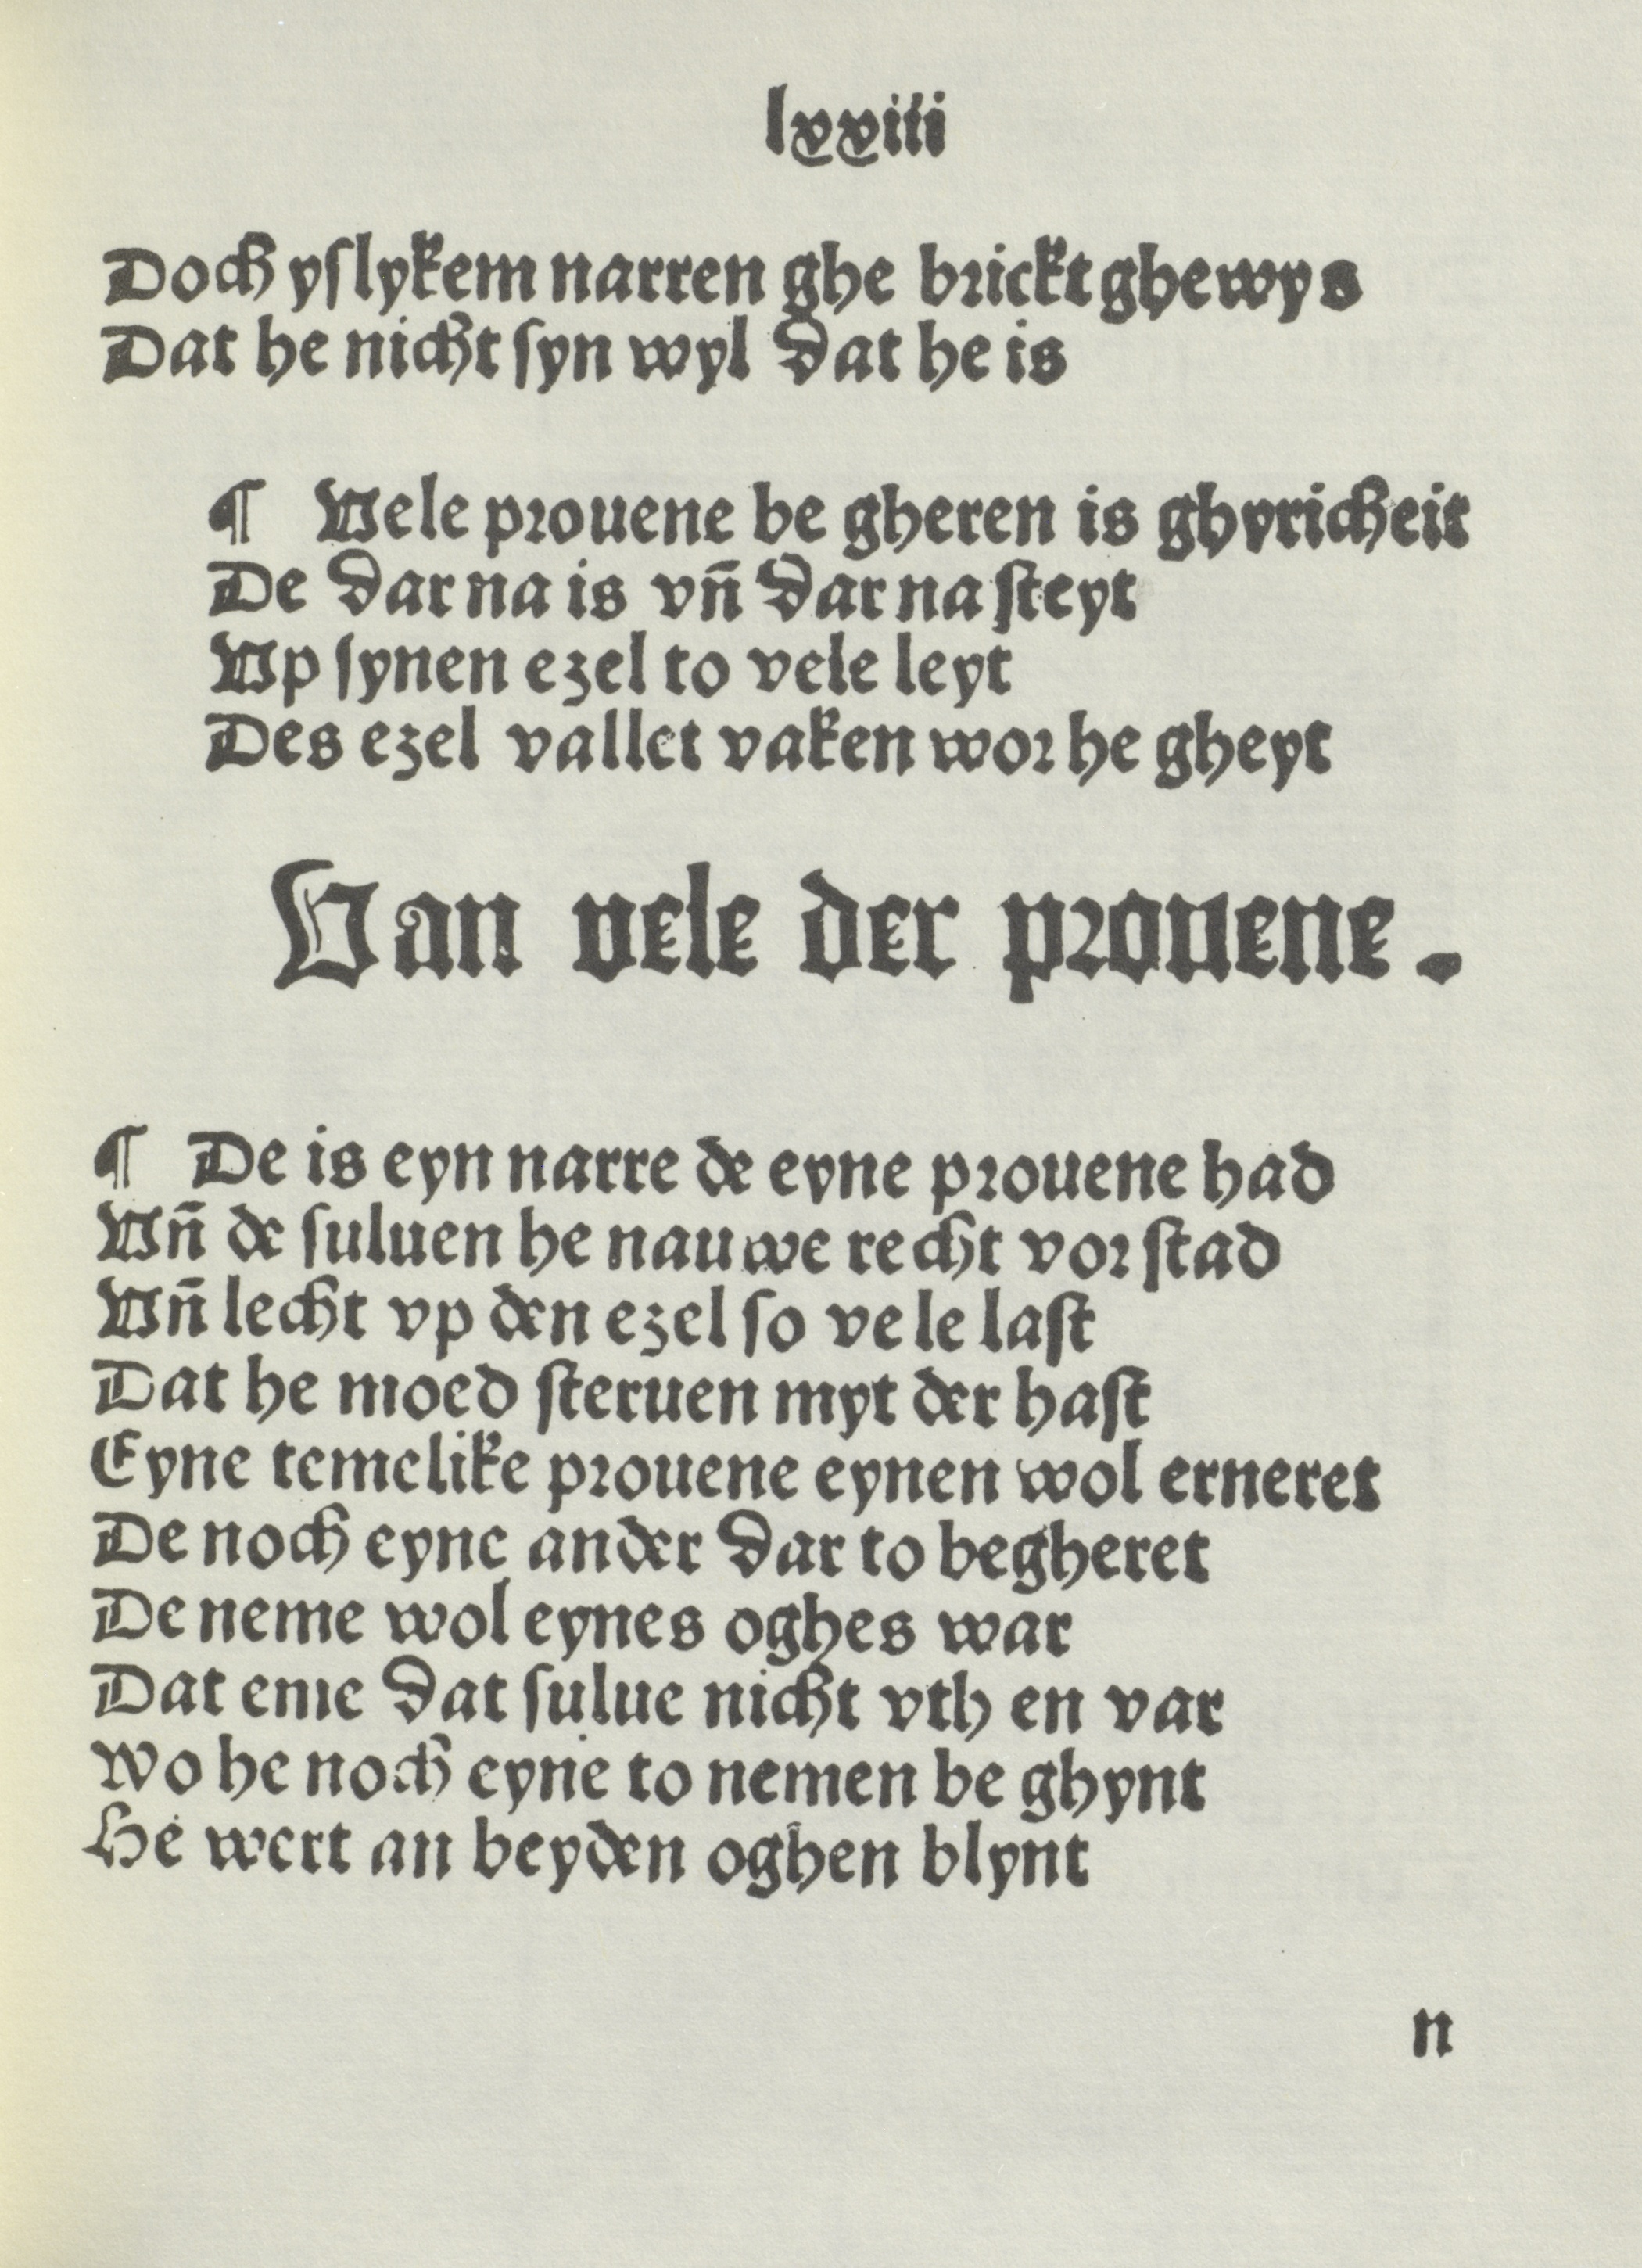 lxxiii
Doch yslykem narren ghe brickt ghewys
Dat he nicht syn wyl dat he is
¶ Vele prouene be gheren is ghyricheit
De dar na is vñ dar na steyt
Vp synen ezel to vele leyt
Des ezel vallet vaken wor he gheyt
Van vele der prouene.
¶ De is eyn narre de eyne prouene had
Vñ de suluen he nauwe recht vor stad
Vñ lecht vp den ezel so ve le last
Dat he moed steruen myt der hast
Eyne temelike prouene eynen wol erneret
De noch eyne ander dar to begheret
De neme wol eynes oghes war
Dat eme dat sulue nicht vth en var
Wo he noch eyne to nemen be ghynt
He wert an beyden oghen blynt
n